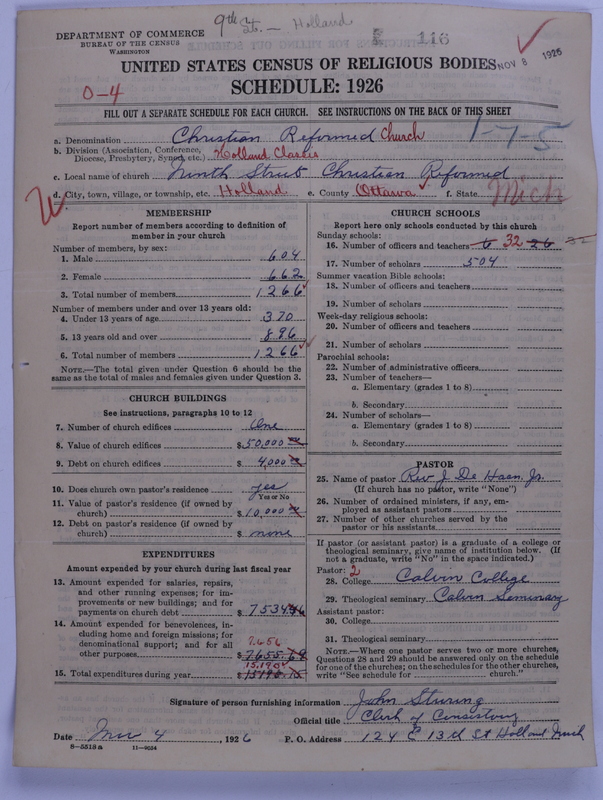 9th St. - Holland
DEPARTMENT OF COMMERCE
BUREAU OF THE CENSUS
WASHINGTON
E 116
NOV 8 1926
UNITED STATES CENSUS OF RELIGIOUS BODIES
SCHEDULE: 1926
0-4
FILL OUT A SEPARATE SCHEDULE FOR EACH CHURCH. SEE INSTRUCTIONS ON THE BACK OF THIS SHEET
1-7-5
a. Denomination Christian Reformed Church
b. Division (Association, Conference, Diocese, Presbytery, Synod, etc.) Holland Classis
c. Local name of church Ninth Street Christian Reformed
d. City, town, village, or township, etc. Holland e. County Ottawa f. State Mich
MEMBERSHIP
Report number of members according to definition of member in your church
Number of members, by sex:
1. Male 604
2. Female 662
3. Total number of members 1266
Number of members under and over 13 years old:
4. Under 13 years of age 370
5. 13 years old and over 896
6. Total number of members 1266
NOTE.—The total given under Question 6 should be the same as the total of males and females given under Question 3.
CHURCH BUILDINGS
See instructions, paragraphs 10 to 12
7. Number of church edifices One
8. Value of church edifices $50,000
9. Debt on church edifices $ 4,000
10. Does church own pastor's residence yes
Yes or No
11. Value of pastor's residence (if owned by church) $10,000
12. Debt on pastor's residence (if owned by church) $ none
EXPENDITURES
Amount expended by your church during last fiscal year
13. Amount expended for salaries, repairs, and other running expenses; for improvements or new buildings; and for payments on church debt $ 7534.46
14. Amount expended for benevolences, including home and foreign missions; for denominational support; and for all other purposes 7,656 $7655.69
15. Total expenditures during year 15,190 $15190.15
CHURCH SCHOOLS
Report here only schools conducted by this church
Sunday schools:
16. Number of officers and teachers 6 32 26 32
17. Number of scholars 504
Summer vacation Bible schools:
18. Number of officers and teachers
19. Number of scholars
Week-day religious schools:
20. Number of officers and teachers
21. Number of scholars
Parochial schools:
22. Number of administrative officers
23. Number of teachers—
a. Elementary (grades 1 to 8)
b. Secondary
24. Number of scholars—
a. Elementary (grades 1 to 8)
b. Secondary
PASTOR
25. Name of pastor Rev J. De Haan, Jr.
(If church has no pastor, write "None")
26. Number of ordained ministers, if any, employed as assistant pastors
27. Number of other churches served by the pastor or his assistants
If pastor (or assistant pastor) is a graduate of a college or theological seminary, give name of institution below. (If not a graduate, write "No" in the space indicated.)
Pastor: 2
28. College Calvin College
29. Theological seminary Calvin Seminary
Assistant pastor:
30. College
31. Theological seminary
NOTE.—Where one pastor serves two or more churches, Questions 28 and 29 should be answered only on the schedule for one of the churches; on the schedules for the other churches, write "See schedule for church."
Signature of person furnishing information John
Official title Clerk of Consistory
Date Nov 4, 1926 P. O. Address 124 E 13th St Holland Mich
8-5518 a 11-9054